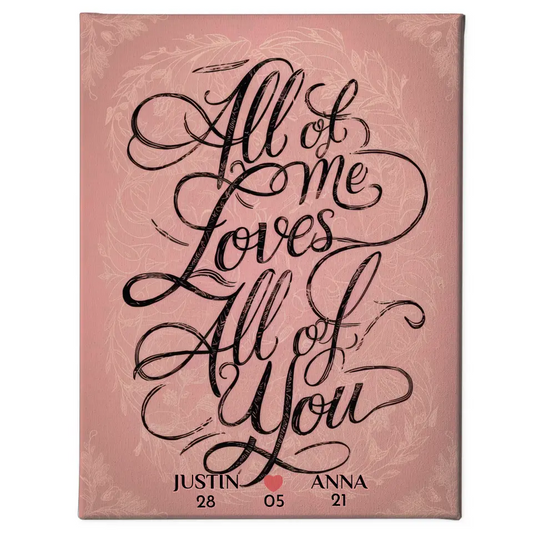 All of
me
Loves
All of
You
JUSTIN ANNA
28 05 21